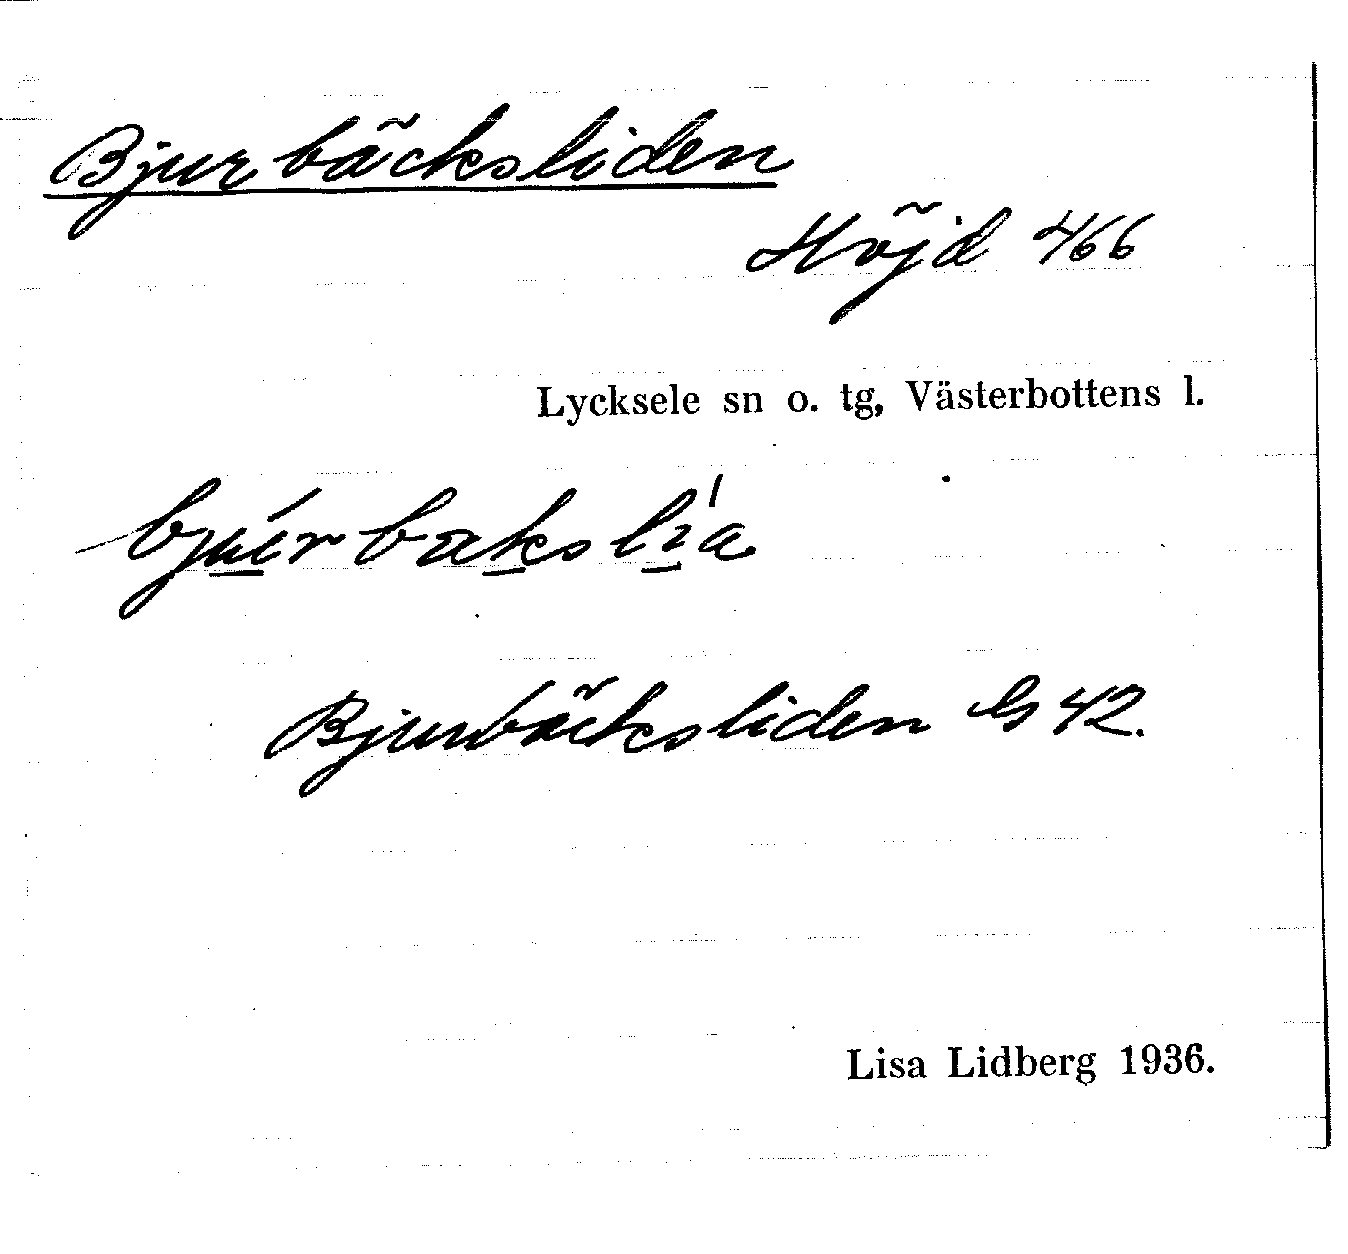 Bjurbäcksliden
Höjd 466
Lycksele sn o. tg, Västerbottens l.
Bjurbäcksliden G 42.
Lisa Lidberg 1936.